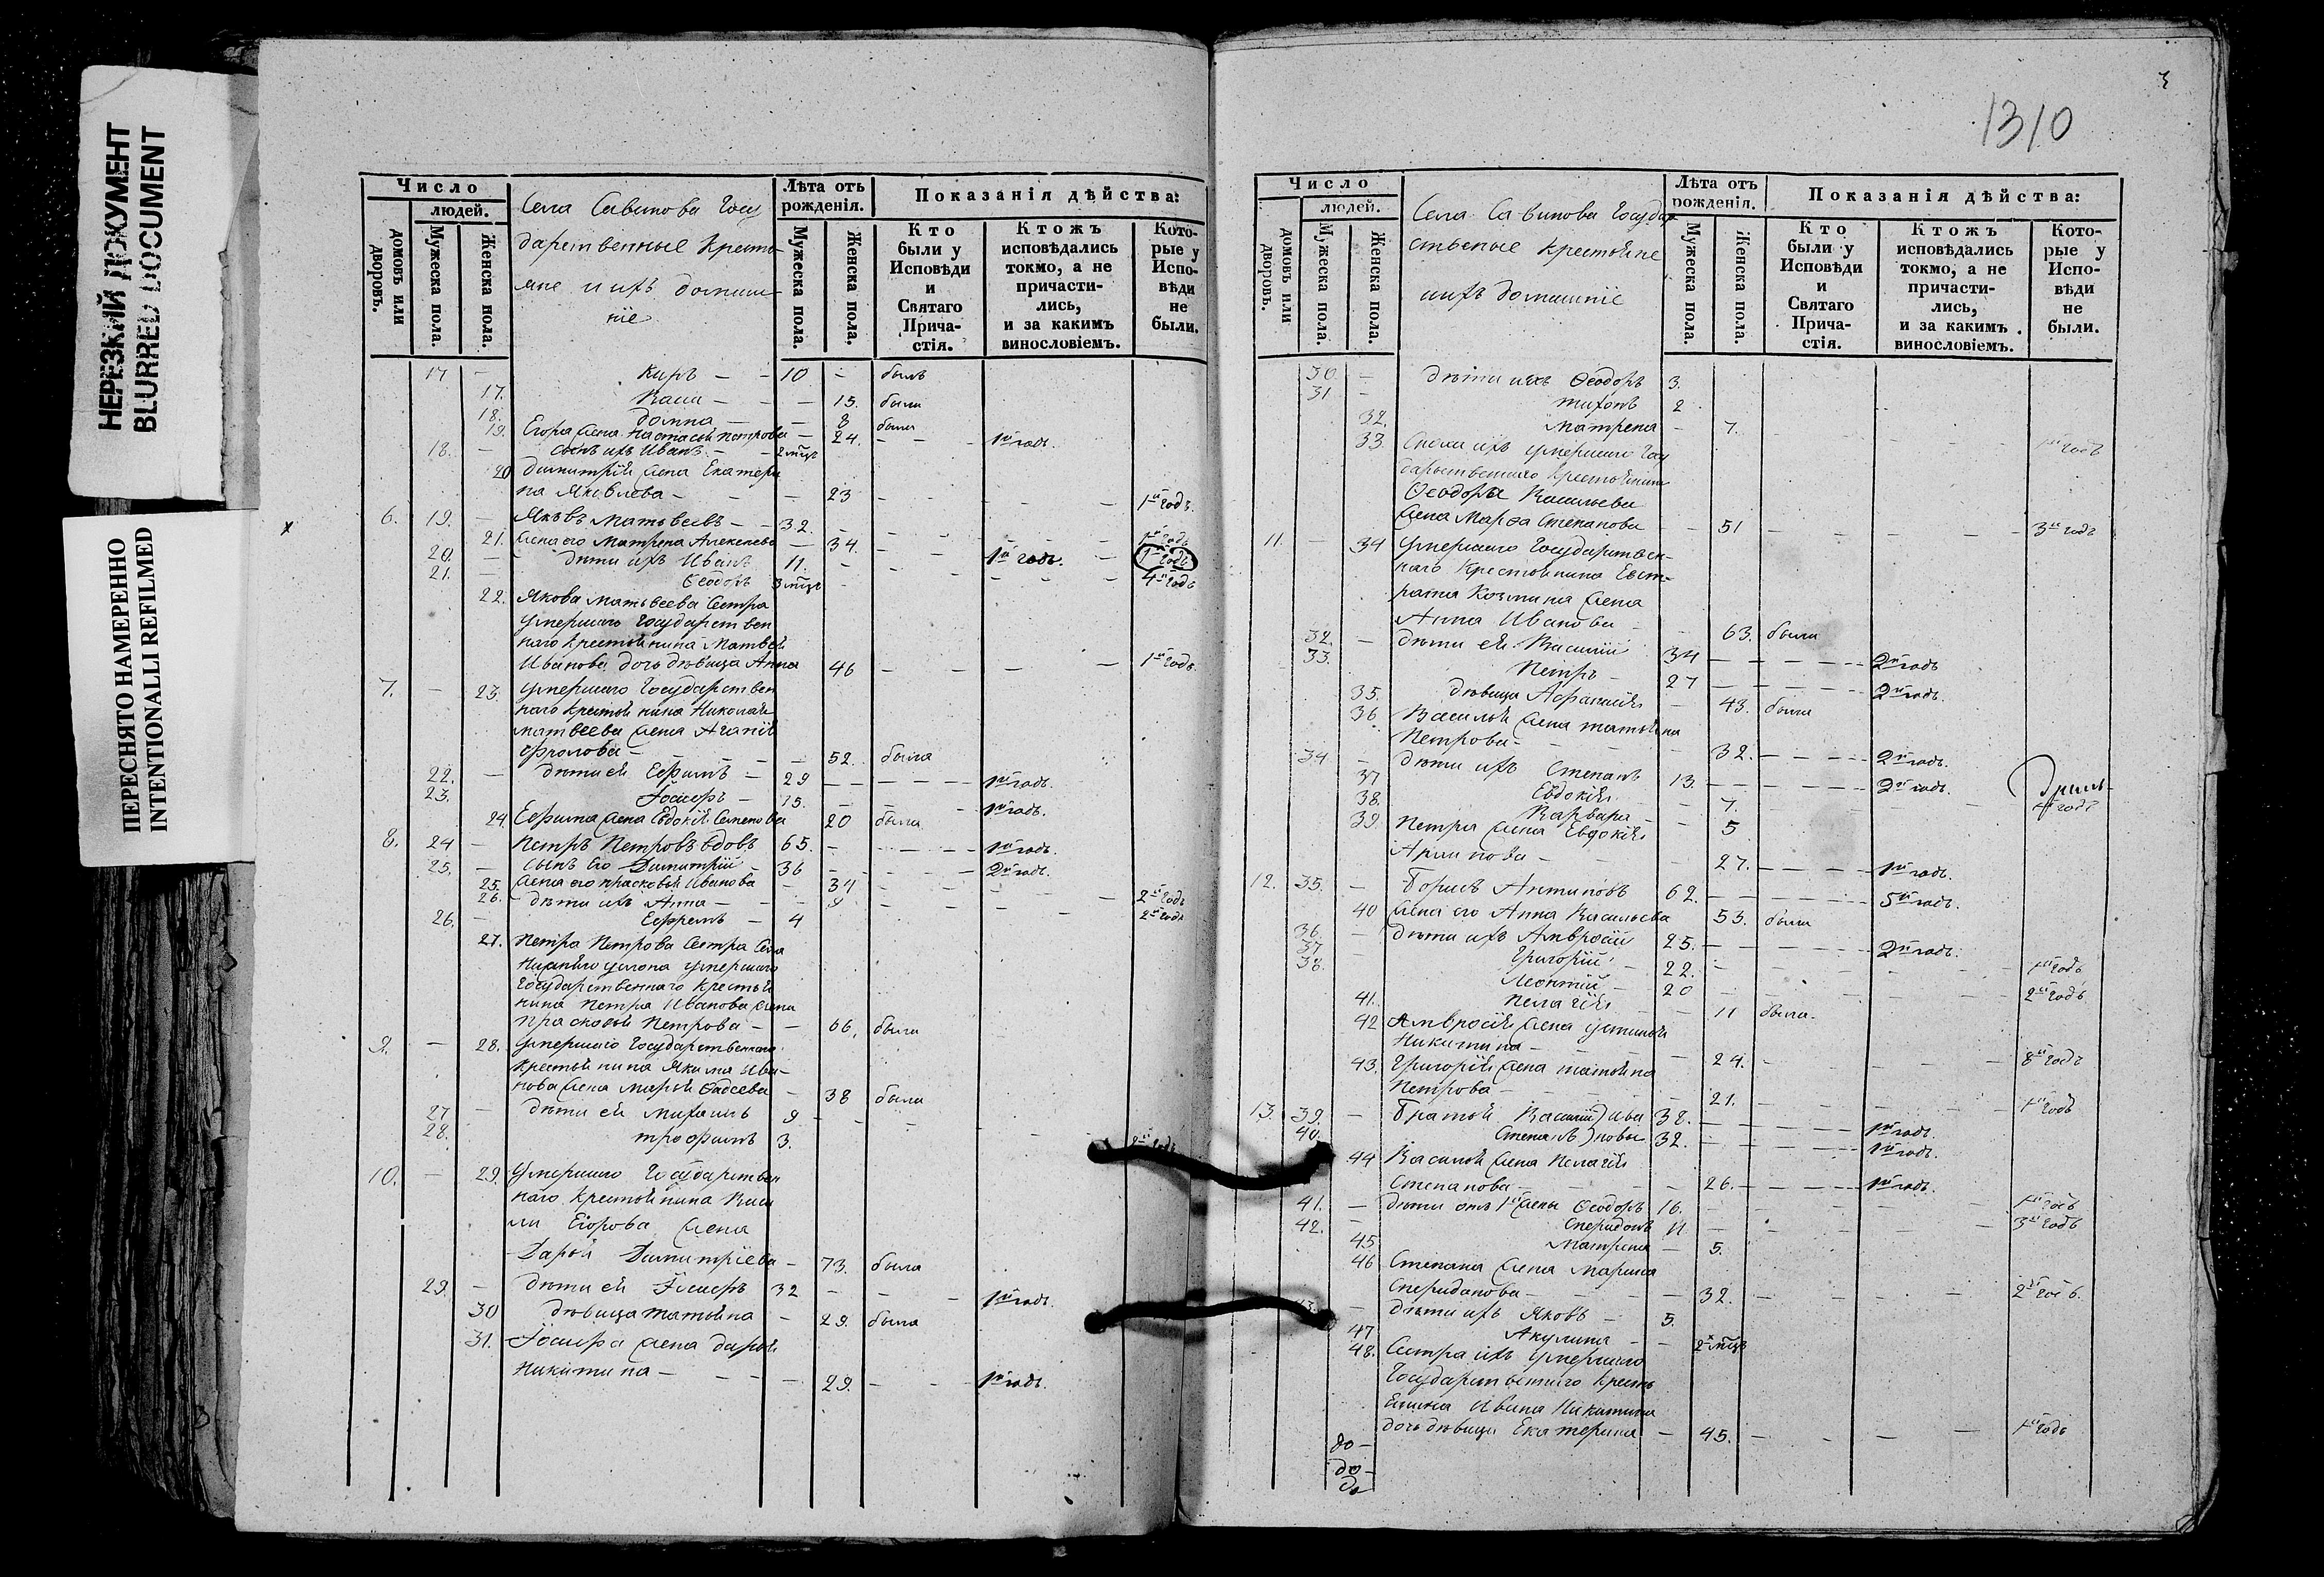 НЕРЕЗКИЙ ДОКУМЕНТ
BLURRED DOCUMENT
ПЕРЕСНЯТО НАМЕРЕННО
INTENTIONALLI REFILMED
Число
людей.
домовъ или дворовъ.
Мужеска пола.
Женска пола.
Села Савинова Госу
дарственные Кресть-
яне и ихъ домаш
ніе
Лѣта отъ рожденія.
Мужеска пола.
Женска пола.
Показанія дѣйства:
Кто были у Исповѣди и Святаго Прича-стія.
Ктожъ исповѣдались токмо, а не причасти-лись, и за какимъ винословіемъ.
Кото-рые у Испо-вѣди не были.
17 — Киръ — — 10 — былъ
17. — — 15. была
18. Домна — — 8 была
19. Егора жена Настасья Петрова — 24. — — — 1й годъ.
18. — Сынъ ихъ Иванъ — — 2 мѣц
20 Димитрія жена Екатери
на Яковлева — — — 23 — — — 1й годъ.
6. 19. — Яковъ Матвеевъ — — 32. — — 1й годъ
21. Жена его Матрена Алексеева — 34. — —
20. — Дѣти ихъ Иванъ 11. — — 1й годъ. — 1й годъ
21. — Ѳеодоръ 3 мѣц — — 4й годъ
22. Якова Матвеева Сестра
Умершаго Государствен
наго Крестьянина Матвея
Иванова дочь дѣвица Анна 46 — — — — 1й годъ
7. — 23. Умершаго Государствен
наго Крестьянина Николая
Матвеева жена Агапія
Фролова — — — 52. была
22. — Дѣти ея Ефимъ — 29 — — — — 1й годъ.
23. Іосифъ — 15. — — — 1й годъ.
24. Ефима жена Евдокія Семенова 20 была
8. 24 — Петръ Петровъ вдовъ 65. — — — — 1й годъ.
25. — Сынъ его Димитрій — 36 — — — 2й годъ.
25. Жена его Прасковья Иванова — 34 — — — — 2й годъ
26. Дѣти ихъ Анна — — — 9 — — — — 2й годъ
26. — Ефремъ — 4
27. Петра Петрова Сестра Села
Нижняго Услона умершаго
Государственнаго Крестья
нина Петра Иванова жена
Прасковья Петрова — — 66, была
9. — 28. Умершаго Государственнаго
Крестьянина Якима Ива-
нова жена Марья Фадеева — 38 была
27 — Дѣти ея Михаилъ 9 — — —
28. Трофимъ 3.
10. — 29. Умершаго Государствен
наго Крестьянина Васи
лія Егорова жена
Дарья Димитріева — 73. была
29. — Дѣти ея Іосифъ 32 — — — 1й годъ.
30 дѣвица Татьяна — 29. была
31. Іосифа жена Дарья
Никитина — — — — 29. — — — 1й годъ.
3
1310
Число
людей.
домовъ или дворовъ.
Мужеска пола.
Женска пола.
Села Савинова Государ
ственые Крестьяне
и ихъ домашніе
Лѣта отъ рожденія.
Мужеска пола.
Женска пола.
Показанія дѣйства:
Кто были у Исповѣди и Святаго Прича-стія.
Ктожъ исповѣдались токмо, а не причасти-лись, и за какимъ винословіемъ.
Кото-рые у Испо-вѣди не были.
30 — Дѣти ихъ Ѳеодоръ 3.
31 — Тихонъ 2
32. Матрена — 7. — — — — 1й годъ
33. ихъ умершаго Госу
дарственнаго Крестьянина
Ѳеодора Васильева
жена Марѳа Степанова — — 51 — — — — 3й годъ
11. 34 Умершаго Государствен-
наго Крестьянина Евст-
рата Козмина жена
Анна Иванова — — 63. была
32. — Дѣти ея Василій 34 — — — — 2й годъ
33. Петръ — 27 — — — — 2й годъ.
35. дѣвица Афанасія — 43. была
36 Василья жена Татьяна
Петрова — — — — 32. — — — 2й годъ.
34 — Дѣти ихъ Степанъ 13. — — — — 2й годъ.
37 Евдокія — 7. — — 1й годъ
38. Варвара — — 5
39. Петра жена Евдокія
— — — 27. — — — — 1й годъ.
12. 35. — Борисъ Антиповъ 62. — — — — 5й годъ.
40 Жена его Анна Васильева 53. была
36. — Дѣти ихъ Амвросій 25. — — — — 2й годъ.
37 — Григорій — 22. — — — 1й годъ
38. Леонтій — 20 — — — 2й годъ
41. Пелагія — — 11 была.
42 Амвросія жена Устинья
Никитина — — — — 24. — — 8й годъ
43. Григорія жена Татьяна
Петрова — — — 21. — — — — 1й годъ
13. 39. — Братья Василій) Ива 38. — — — — 1й годъ.
40. Степанъ) новы 32. — — — — 1й годъ.
44 Василья жена Пелагія
Степанова — — — — 26. — — — 1й годъ.
41. — Дѣти отъ 1й жены Ѳеодоръ 16. — — — 1й годъ
42. — Спиридонъ 11 — — — 3й годъ
45 Матрена — 5.
46 Степана жена Марина
Спиридонова — — — 32. — — — — 2й годъ.
43. — Дѣти ихъ Яковъ — 5.
47 Акулина — — 2 мѣц
48. Сестра ихъ умершаго
Государственнаго Кресть
янина Ивана Никитина
дочь дѣвица Екатерина — 45. — — — — 1й годъ